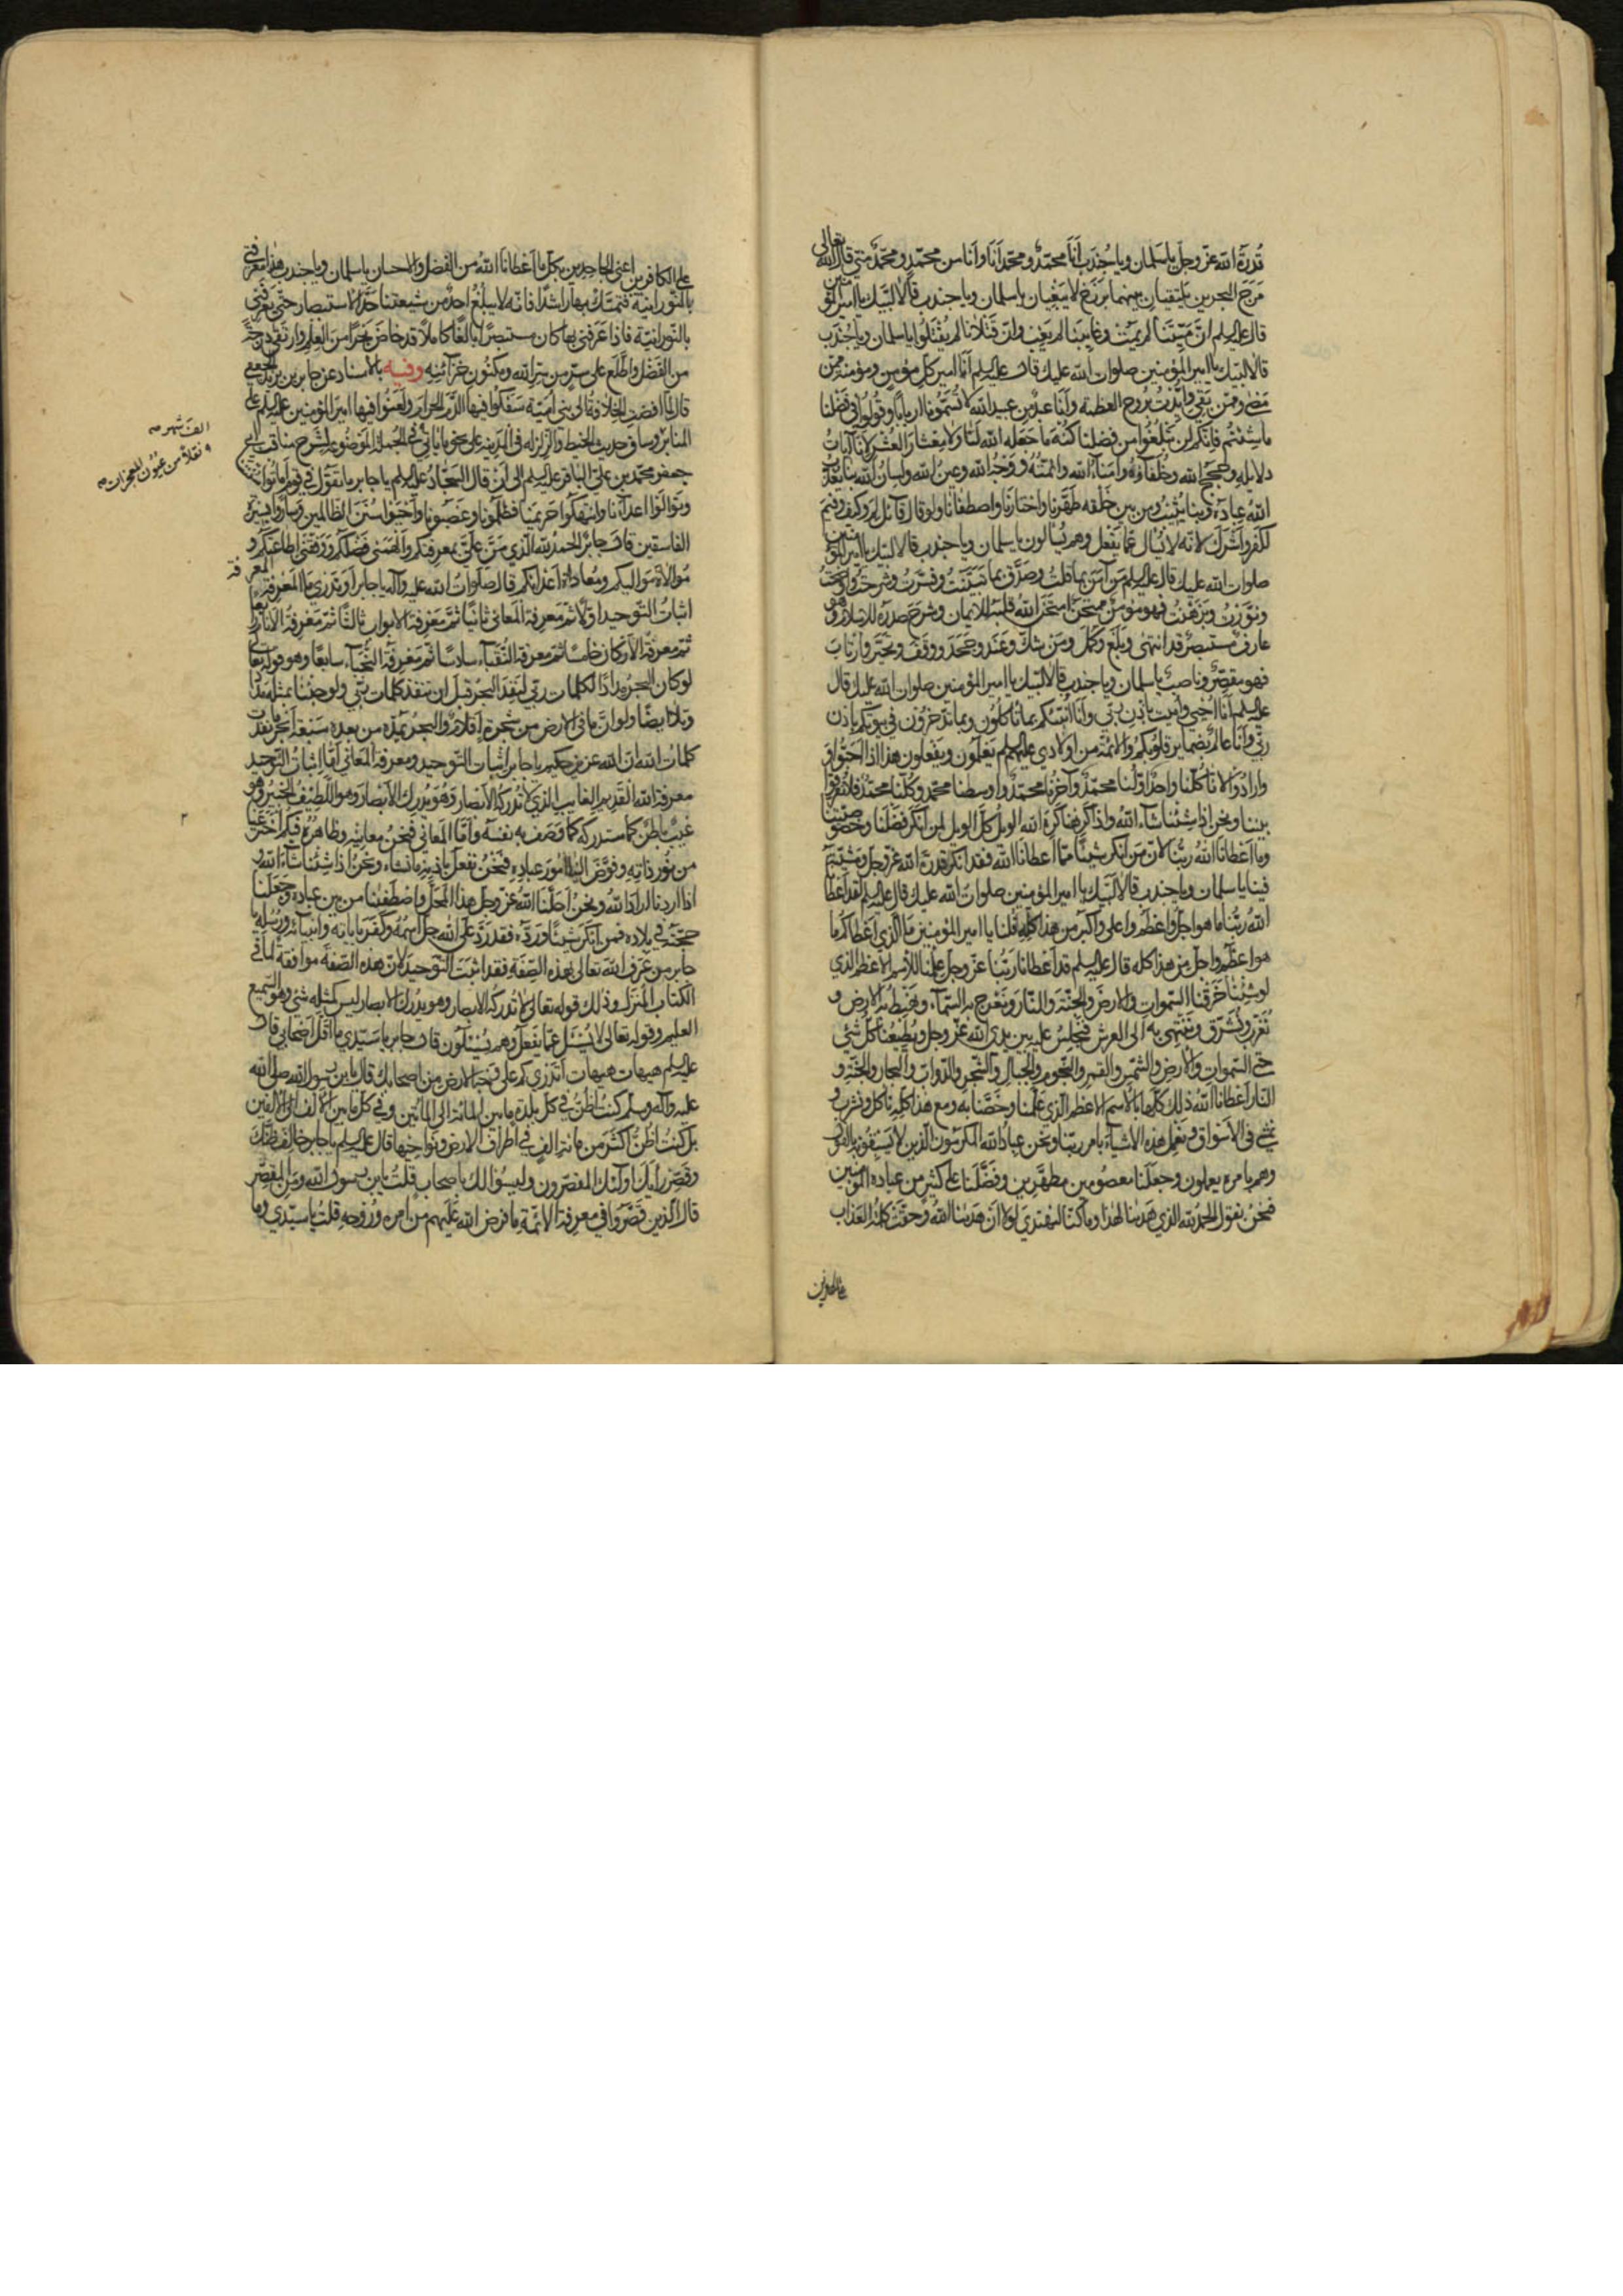 قُدرَةَ الله عزّ وجلّ يا سَلمان ويا جُندَب أنَا محمّدٌ ومحمّدٌ أنَا وأنا من محمّدٍ ومحمّدٌ منّي قال الله تعالى
مَرَجَ البحرين يلتقيان بينهما بَرزَخٌ لا يَبغِيان يا سلمان ويا جندب قالا لبّيك يا امير المؤمنين
قال عليه السلم انّ مَيّتَنا لم يَمُت وغايبَنا لم يَغِب وانّ قتلانا لم يُقتَلُوا يا سلمان ويا جُندَب
قالا لبّيك يا امير المؤمنين صلوات الله عليك قال عليه السلم أنَا امير كلّ مؤمن ومؤمنة ممّن
مضى وممّن بَقِيَ وأُيّدتُ بروح العظمة وأنا عبدٌ من عبيد الله لا تُسَمّونا اربابًا وقُولُوا في فضلنا
ما شئتُم فإنّكم لن تبلُغُوا من فضلنا كُنهَ ما جَعَله الله لنا ولا مِعشارَ العُشر لأنّا آياتُ الله
ودلايله وحُجَجُ الله وخُلَفاؤُه وأُمَناءُ الله وائمّتُهُ ووَجهُ الله وعينُ الله ولسانُ الله بنا يُعذّبُ
اللهُ عبادَهُ وبنا يُثيبُ ومن بين خَلقِه طَهّرَنا واختارَنا واصطفانا ولو قال قائل لِمَ وكيف وفيمَ
لكفر وأشرَك لانّه لا يُسال عمّا يَفعل وهم يُسالون يا سلمان ويا جندب قالا لبّيك يا امير المؤمنين
صلوات الله عليك قال عليه السلم مَن آمَنَ بما قلتُ وصَدّق بما بَيّنتُ وفسّرتُ وشرحتُ وأوضحتُ
ونوّرتُ وبَرهَنتُ فهو مؤمنٌ ممتحنٌ امتحَنَ اللهُ قلبَه للايمان وشرحَ صدرَه للاسلام وهو
عارفٌ مستبصرٌ قد انتهى وبلَغَ وكمل ومن شكّ وعَنَدَ وجَحَدَ ووقفَ وتحيّرَ وارتابَ
فهو مقصّرٌ وناصبٌ يا سلمان ويا جندب قالا لبّيك يا امير المؤمنين صلوات الله عليك قال
عليه السلم أنَا أُحيي وأُميت بإذن ربّي وأنا أُنبّئُكم بما تأكلُون وبما تدّخرُون في بيوتكم بإذن
ربّي وأنا عالمٌ بضماير قلوبكم والائمّة من اولادي عليهم السلم يَعلَمون ويَفعلون هذا اذا أحبّوا
وارادُوا لأنّا كُلّنا واحدٌ أوّلُنا محمّدٌ وآخرُنا محمّدٌ وأوسطنا محمّد وكلّنا محمّدٌ فلا تُفَرّقُوا
بيننا ونحن إذا شِئنا شآء اللهُ وإذا كَرِهنا كَرِهَ الله الويلُ كلّ الويل لمن أنكر فضلَنا وخصوصيّتنا
وما أعطانا اللهُ ربُّنا لأنّ مَن أنكر شيئًا ممّا أعطانا الله فقد انكر قدرةَ الله عزّ وجلّ ومَشيّتَه
فينا يا سلمان ويا جندب قالا لبّيك يا امير المؤمنين صلواتُ الله عليك قال عليه السلم لقد أعطانا
اللهُ ربُّنا ما هو اجلّ وأعظمُ وأعلى وأكبر من هذا كلّه قلنا يا امير المؤمنين ما الّذي أعطاكُم ما
هو اعظم واجلّ من هذا كله قال عليه السلم قد أعطانا ربُّنا عزّ وجلّ علمَنا للاسم الأعظم الذي
لو شِئنا خَرَقنا السّموات والارضَ والجنّةَ والنّارَ ونَعرُج به السّمآء ونَهبِطُ به الارض و
نُغَرّب ونُشَرّق ونَنتَهي به الى العرش فنجلسُ عليه بين يدَي الله عزّ وجلّ ويُطيعُنا كلّ شيءٍ
حتّى السّموات والأرض والشّمس والقمر والنّجوم والجبال والشّجر والدّواب والبحار والجنّة و
النّار أعطانا اللهُ ذلك كلّه بالاسم الاعظم الذي علّمنا وخَصّنا به ومع هذا كلّه نأكل ونشرب و
نمشي في الأسواق ونعمل هذه الأشيآء بأمر ربّنا ونحن عبادُ الله المكرمون الذين لا يَسبِقُونَه بالقول
وهم بأمره يعملون وجعلَنا معصومين مطهّرين وفضّلَنا على كثير من عباده المؤمنين
فنحنُ نقول الحمد لله الذي هدينا لهذا وما كنّا لنهتديَ لولا أن هدينا اللهُ وحقّت كلمةُ العذاب
على الكافرين
على الكافرين اعني الجاحدين بكلّ ما أعطانا اللهُ من الفضل والاحسان يا سلمان ويا جندب هذا معرفتي
بالنّورانيّة فتمسّك بها راشدًا فانّه لا يبلغُ احدٌ من شيعتنا حدّ الاستبصار حتّى يَعرفني
بالنّورانيّة فاذا عَرَفني بها كان مستبصرًا بالغًا كاملًا قد خاضَ بحرًا من العلم وارتقى درجةً
من الفضل واطّلَع على سرّ من سرّ الله ومكنُون خزائنِه وفيه بالأسناد عن جابر بن يزيد الجعفي
قال لمّا افضت الخلافة الى بني أُميّة سفكُوا فيها الدّم الحرام ولَعَنُوا فيها امير المؤمنين عليه السلم على
المنابر الف شهر
وساق حديث الخيط والزلزلة في المدينة على نحو ما يأتي في الجملة الموضُوعة لشرح مناقب ابي
ونقلاً من عيُون المعجزات
جعفر محمّد بن عليّ الباقر عليه السلم الى أن قال السجّادُ عليه السلم يا جابر ما تقول في قوم أماتُوا سُنّتنا
وتوالَوا اعدآءنا وانتهكُوا حَريمنا فظلمونا وغصبونا وأحيَوا سُنَنَ الظالمين وسارُوا بسيرة
الفاسقين قال جابر الحمدُ لله الّذي مَنّ عليّ بمعرفتكم وألهَمَني فضلَكم ووَفّقني لطاعتكم و
مُوالاة مَواليكم ومُعاداة أعدائكم قال صلوات الله عليه وآله يا جابر أوَتدري ما المعرفة المعرفة
اثباتُ التّوحيد اوّلًا ثمّ معرفة المعاني ثانيًا ثمّ معرفة الأبواب ثالثًا ثمّ معرفةُ الأنام رابعًا
ثمّ معرفة الأركان خامسًا ثمّ معرفة النّقبآء سادسًا ثمّ معرفة النّجبآء سابعًا وهو قوله تعالى
لو كان البحرُ مدادًا لكلمات ربّي لنَفِدَ البحرُ قبلَ ان تنفد كلمات ربّي ولو جئنا بمثله مددًا
وتلا ايضًا ولو انّ ما في الارض من شجرة أقلامٌ والبحرُ يمدّه من بعده سبعةُ أبحر ما نفدت
كلماتُ الله انّ الله عزيز حكيم يا جابر إثبات التّوحيد ومعرفة المعاني أمّا إثباتُ التّوحيد
معرفة الله القديم الغايب الذي لا تُدركُه الأبصار وهو يُدرك الأبصار وهو اللّطيف الخبير وهو
غيبٌ باطنٌ كما ستدركه كما وَصَف به نفسَه وأمّا المعاني فنحنُ معانيه وظاهرُه فيكم اخترعنا
من نُور ذاتِه وفوّضَ الينا أمورَ عباده فنحنُ نفعل بإذنه ما نشاء ونحنُ اذا شئنا شآء الله و
اذا اردنا اراد الله ونحنُ أحلّنا اللهُ عزّ وجلّ هذا المحلّ واصطفانا من بين عباده وجَعَلَنا
حججَه في بلاده فمن أنكرَ شيئًا ورَدّه فقد رَدّ على الله جلّ اسمُه وكفر بآياته وأنبيائه ورُسُله يا
جابر من عَرَف الله تعالى بهذه الصّفة فقد أثبَتَ التّوحيدَ لأنّ هذه الصّفة موافقة لما في
الكتاب المُنزَل وذلك قوله تعالى لا تُدركُه الأبصار وهو يدرك الأبصار ليس كمثله شيءٌ وهو السّميع
العليم وقوله تعالى لا يُسئلُ عمّا يفعل وهم يُسئلون قال جابر يا سيّدي ما أقلّ أصحابي قال
عليه السلم هيهات هيهات أتدري كم على وجه الارض من اصحابك قال يا بن رسول الله صلى الله
عليه وآله وسلم كنتُ أظُنّ في كلّ بلدة ما بين المائة الى المائتين وفي كلّ ما بين الألف الى الألفين
بل كنتُ أظُنّ أكثرَ من مائة ألفٍ في أطراف الارض ونواحيها قال عليه السلم يا جابر خالف ظنّك
وقصّر رأيَك أولئك المقصّرون وليسُوا لك بأصحاب قلتُ يا بن رسول الله ومن المقصّر
قال الّذين قصّرُوا في معرفة الائمّة ما فرض الله عليهم من أمره ورُوحه قلتُ يا سيّدي وما